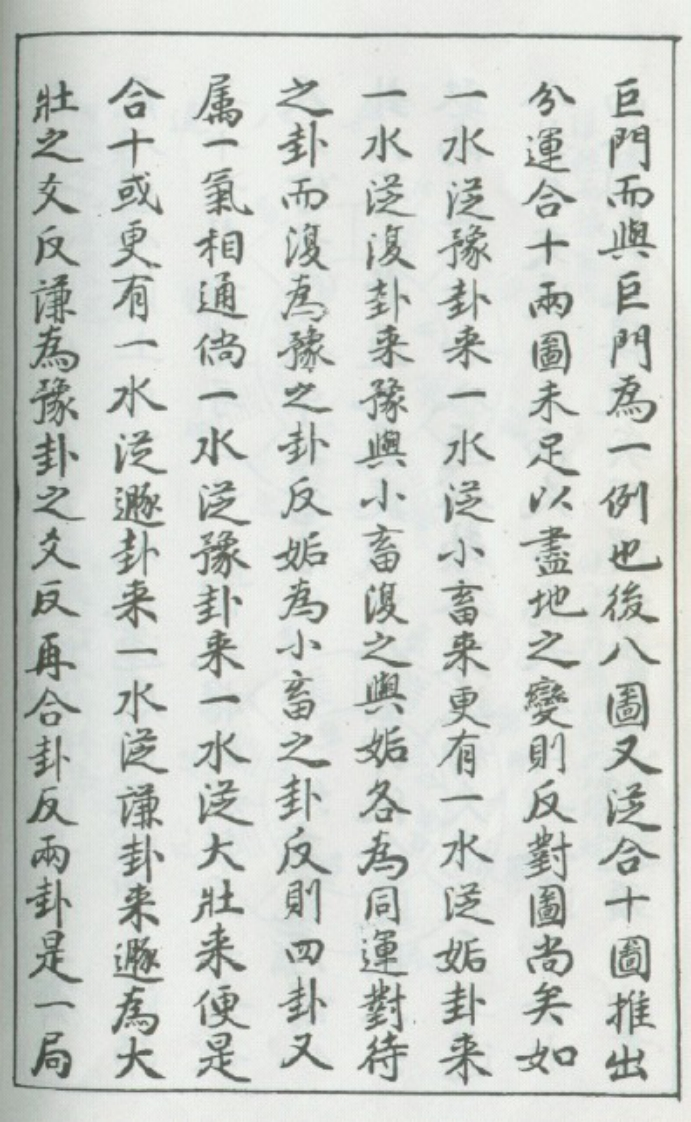 巨門而與巨門為一例也後八圖又從合十圖推出
分運合十兩圖未足以盡地之變則反對圖尚矣如
一水從豫卦来一水從小畜来更有一水從姤卦来
一水從復卦来豫與小畜復之與姤各為同運對待
之卦而復為豫之卦反姤為小畜之卦反則四卦又
属一氣相通倘一水從豫卦来一水從大壯来便是
合十或更有一水從遯卦来一水從謙卦来遯為大
壯之爻反謙為豫卦之爻反再合卦反兩卦是一局